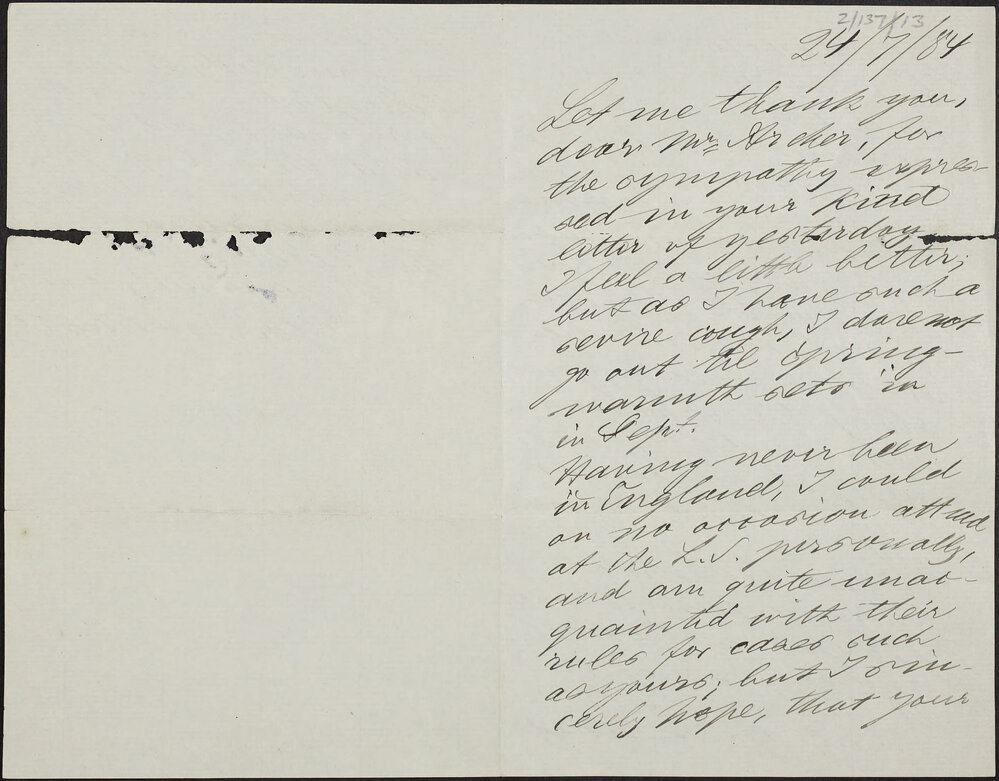 2/137/13
24/7/84
Let me thank you,
dear Mrs Archer, for
the sympathy expres-
sed in your kind
letter of yesterday
I feel a little better;
but as I have such a
severe cough, I dare not
go out til spring-
warmth sets in
in Sept.
Having never been
in England, I could
on no occasion attend
at the L.S. personally,
and am quite unac-
quainted with their
rules for cases such
as yours; but I sin-
cerely hope, that your